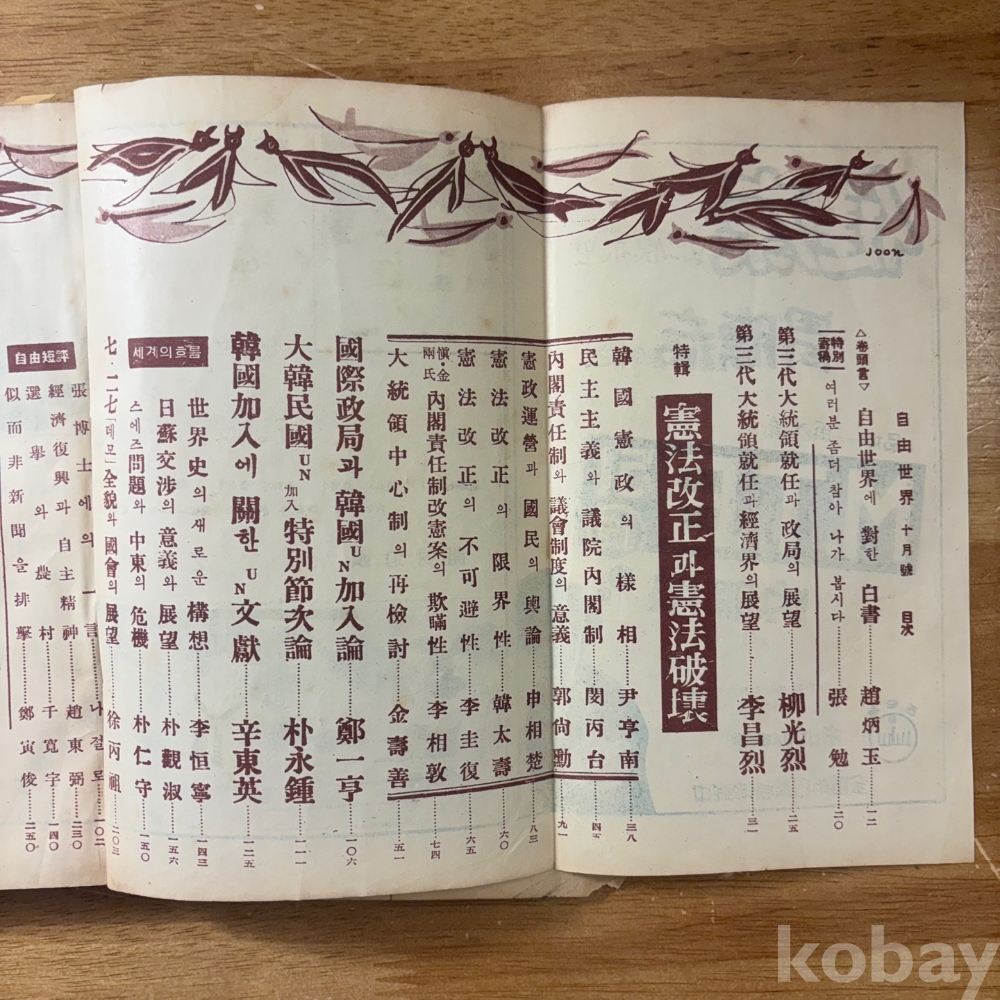 Joon
自由世界 十月號 目次
△卷頭言▽ 自由世界에 對한 白書 趙炳玉 一二
特別寄稿 여러분 좀더 참아 나가 봅시다 張勉 二〇
第三代大統領就任과 政局의 展望 柳光烈 二五
第三代大統領就任과 經濟界의 展望 李昌烈 三一
特輯 憲法改正과 憲法破壞
韓國憲政의 樣相 尹亨南 三八
民主主義와 議院內閣制 閔丙台 四五
內閣責任制와 議會制度의 意義 郭尙勳 九一
憲政運營과 國民의 輿論 申相楚 八三
憲法改正의 限界性 韓太壽 六〇
憲法改正의 不可避性 李圭復 六五
愼·金兩氏 內閣責任制改憲案의 欺瞞性 李相敦 七四
大統領中心制의 再檢討 金壽善 五一
國際政局과 韓國UN加入論 鄭一亨 一〇六
大韓民國UN加入特別節次論 朴永鍾 一一一
韓國加入에 關한 UN文獻 辛東英 一二五
세계의흐름
世界史의 새로운 構想 李恒寧 一四三
日蘇交涉의 意義와 展望 朴觀淑 一五六
스에즈問題와 中東의 危機 朴仁守 一五〇
七·二七「데모」全貌와 國會의 展望 徐丙祖 二〇三
自由短評
張博士에의 一言 나절로 一〇二
經濟復興과 自主精神 趙東弼 二三〇
選擧와 農村 千寬宇 一四〇
似而非新聞을 排擊 鄭寅俊 二五〇
kobay